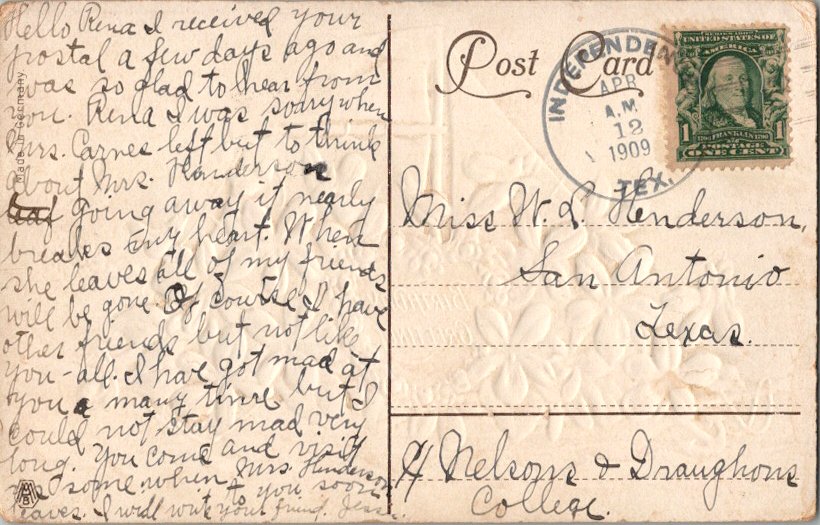 Hello Rena I received your
postal a few days ago and
was so glad to hear from
you. Rena I was sorry when
Mrs. Carnes left but to think
about Mrs. Henderson
going away it nearly
breakes my heart. When
she leaves all of my friends
will be gone. Of course I have
other friends but not like
you-all. I have got mad at
you a many time but I
could not stay mad very
long. You come and visit
some when Mrs. Henderson
leaves. I will write to you soon
your friend. Jess
Made in Germany
Post Card
INDEPENDEN
APR
A.M.
12
1909
TEX.
SERIES 1902
UNITED STATES OF
AMERICA
1 1
1706 FRANKLIN 1790
POSTAGE
ONE CENT
Miss W. L. Henderson,
San Antonio
Texas.
c/ Nelsons & Draughons
College.